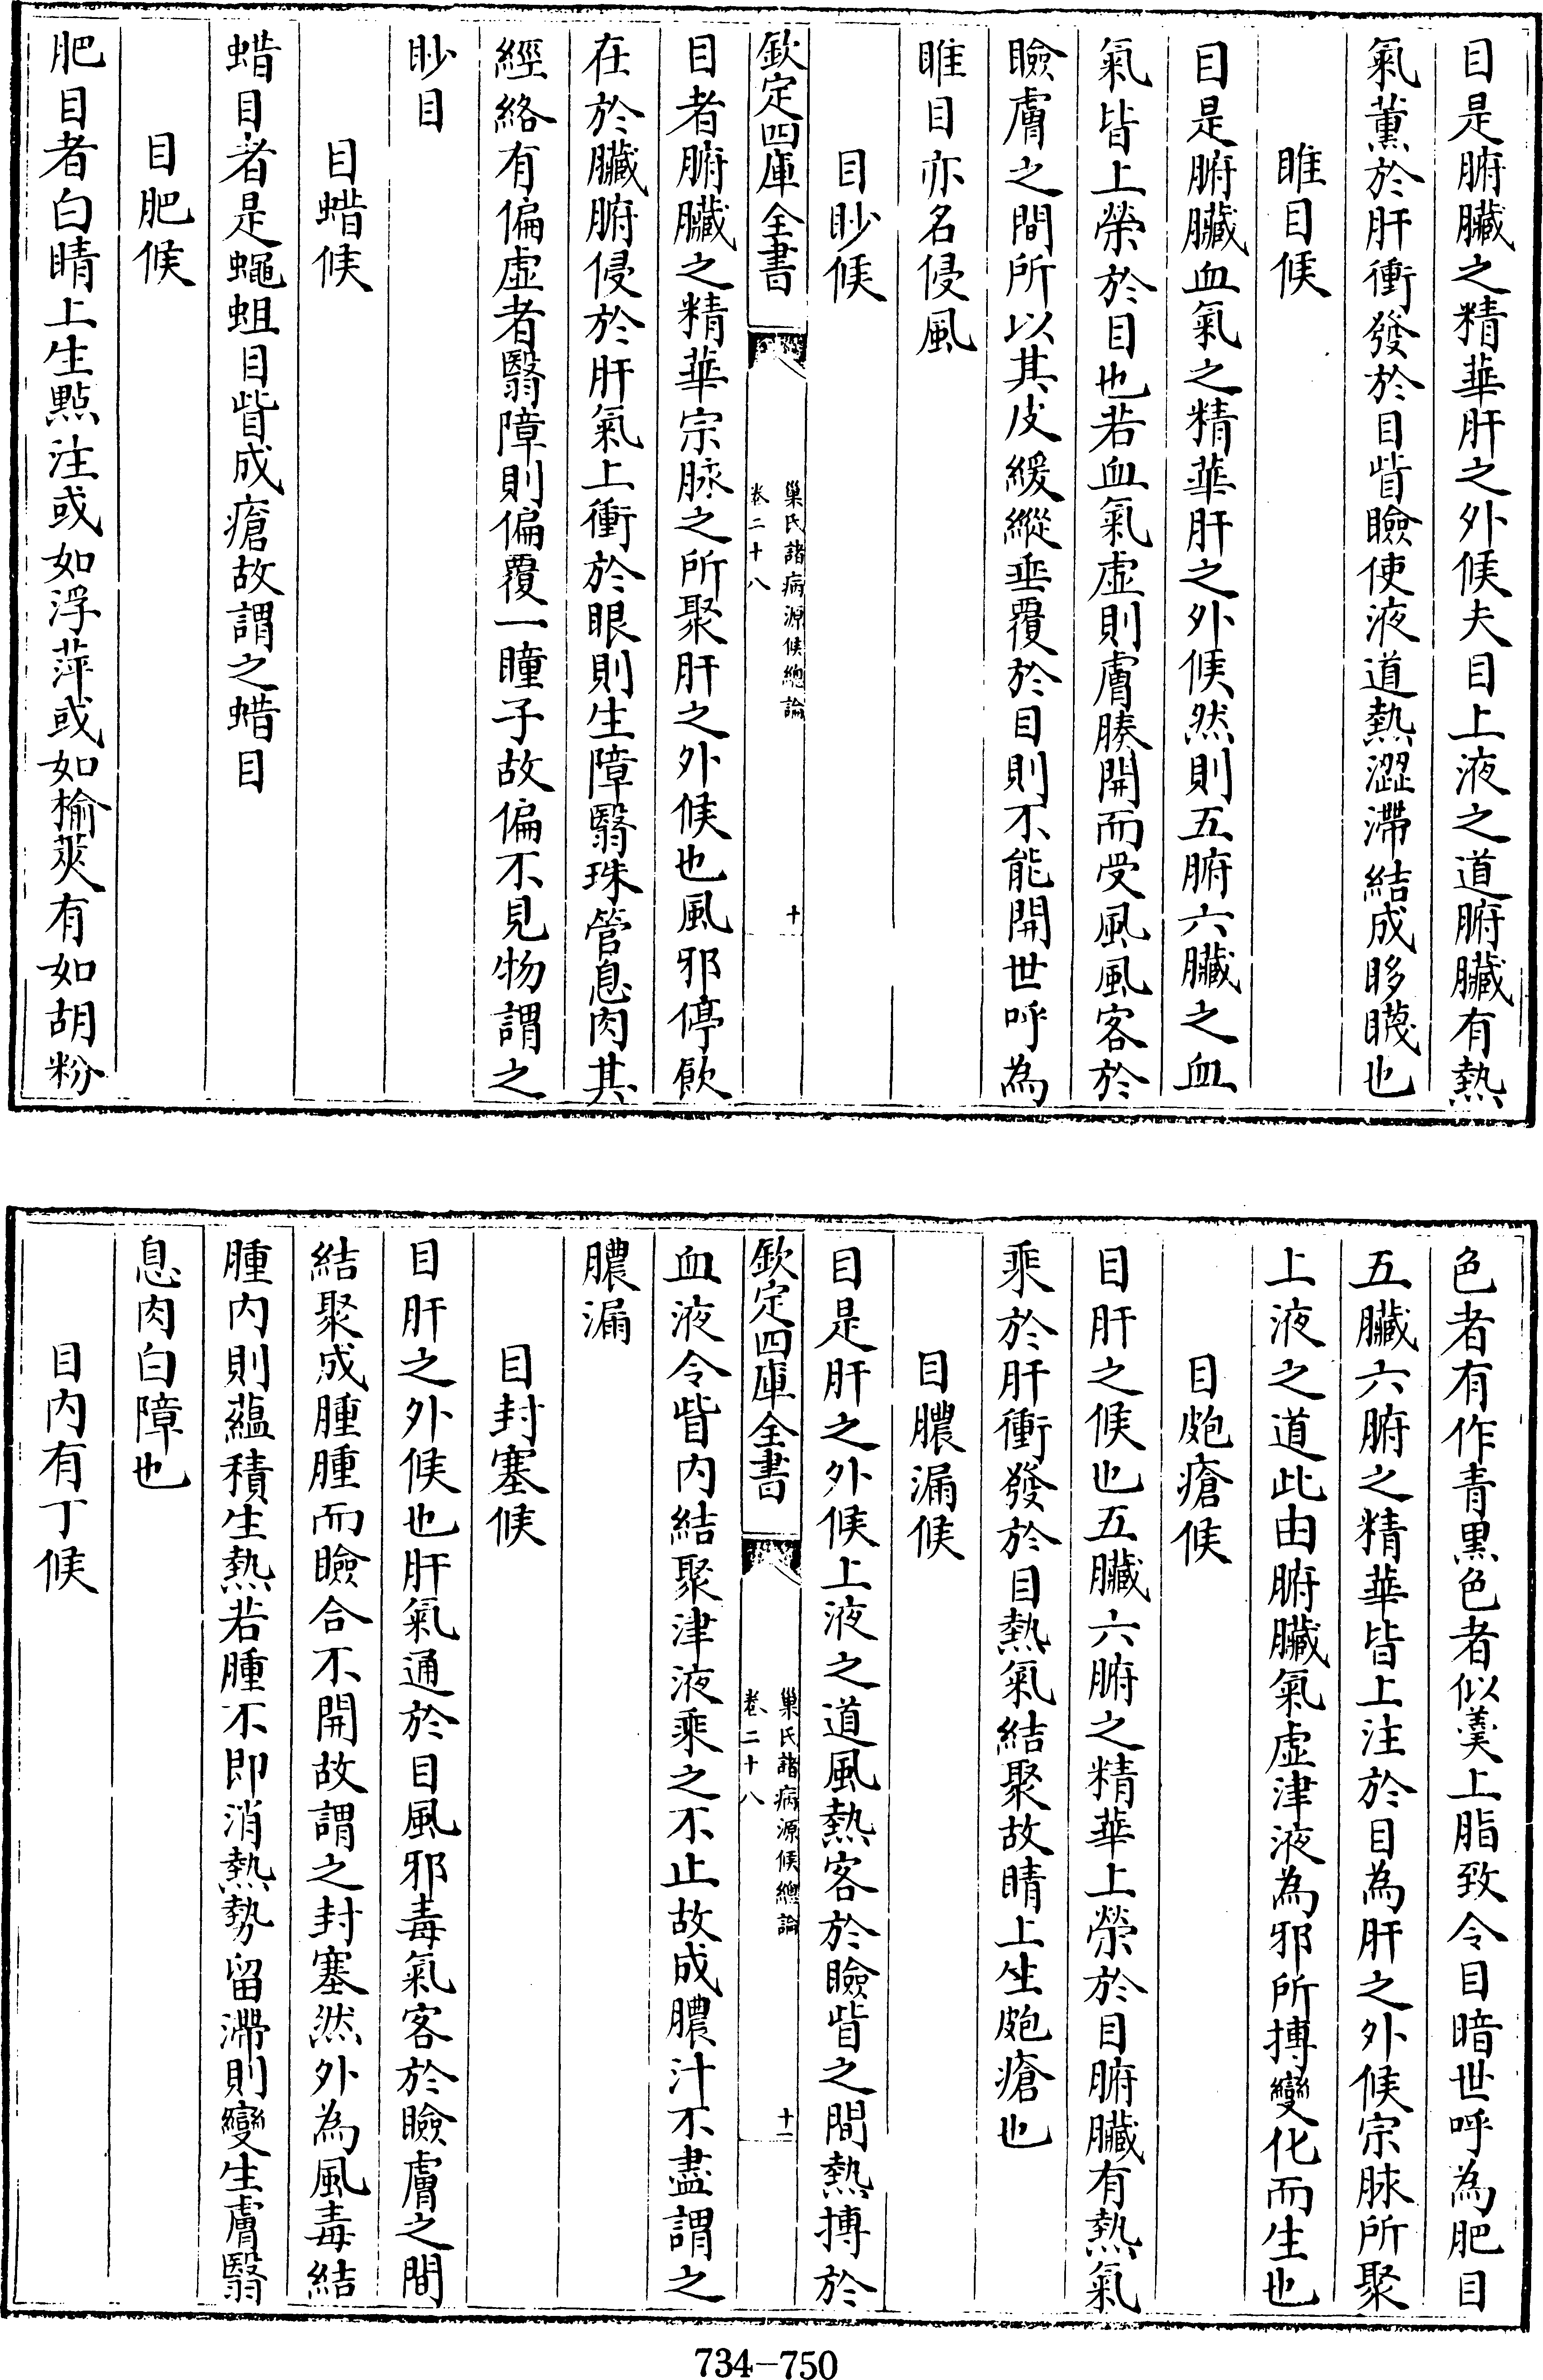 目是腑臟之精華肝之外候夫目上液之道腑臟有熱
氣薰於肝衝發於目眥瞼使液道熱澀滯結成眵䁾也
睢目候
目是腑臟血氣之精華肝之外候然則五腑六臟之血
氣皆上榮於目也若血氣虛則膚腠開而受風風客於
瞼膚之間所以其皮緩縱垂覆於目則不能開世呼為
睢目亦名侵風
目眇候
欽定四庫全書
巢氏諸病源候總論
卷二十八
十
目者腑臟之精華宗脉之所聚肝之外候也風邪停飲
在於臟腑侵於肝氣上衝於眼則生障翳珠管息肉其
經絡有偏虛者翳障則偏覆一瞳子故偏不見物謂之
眇目
目蜡候
蜡目者是蠅蛆目眥成瘡故謂之蜡目
目肥候
肥目者白睛上生點注或如浮萍或如榆莢有如胡粉
色者有作青黑色者似羹上脂致令目暗世呼為肥目
五臟六腑之精華皆上注於目為肝之外候宗脉所聚
上液之道此由腑臟氣虛津液為邪所搏變化而生也
目皰瘡候
目肝之候也五臟六腑之精華上榮於目腑臟有熱氣
乘於肝衝發於目熱氣結聚故睛上生皰瘡也
目膿漏候
目是肝之外候上液之道風熱客於瞼眥之間熱搏於
欽定四庫全書
巢氏諸病源候總論
卷二十八
十一
血液令眥内結聚津液乘之不止故成膿汁不盡謂之
膿漏
目封塞候
目肝之外候也肝氣通於目風邪毒氣客於瞼膚之間
結聚成腫腫而瞼合不開故謂之封塞然外為風毒結
腫内則蘊積生熱若腫不即消熱勢留滯則變生膚翳
息肉白障也
目内有丁候
734-750